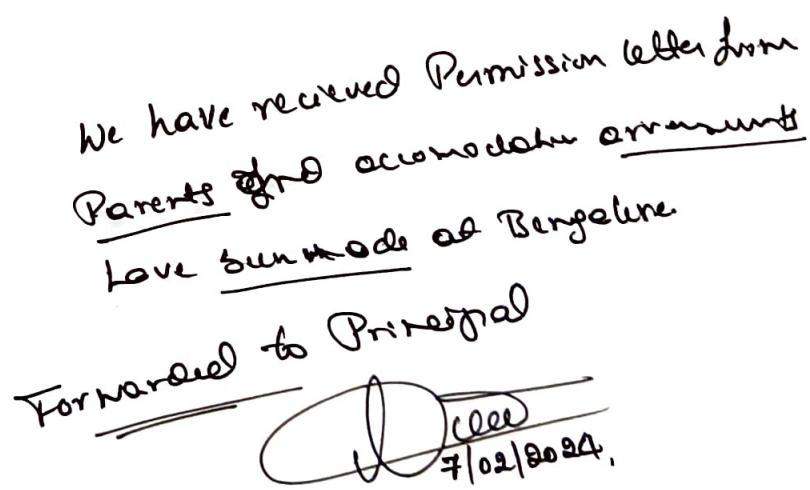 We have recieved Permission letter from
Parents and accomodation arrangements
have been made at Bangalore
Forwarded to Principal
7/02/2024.